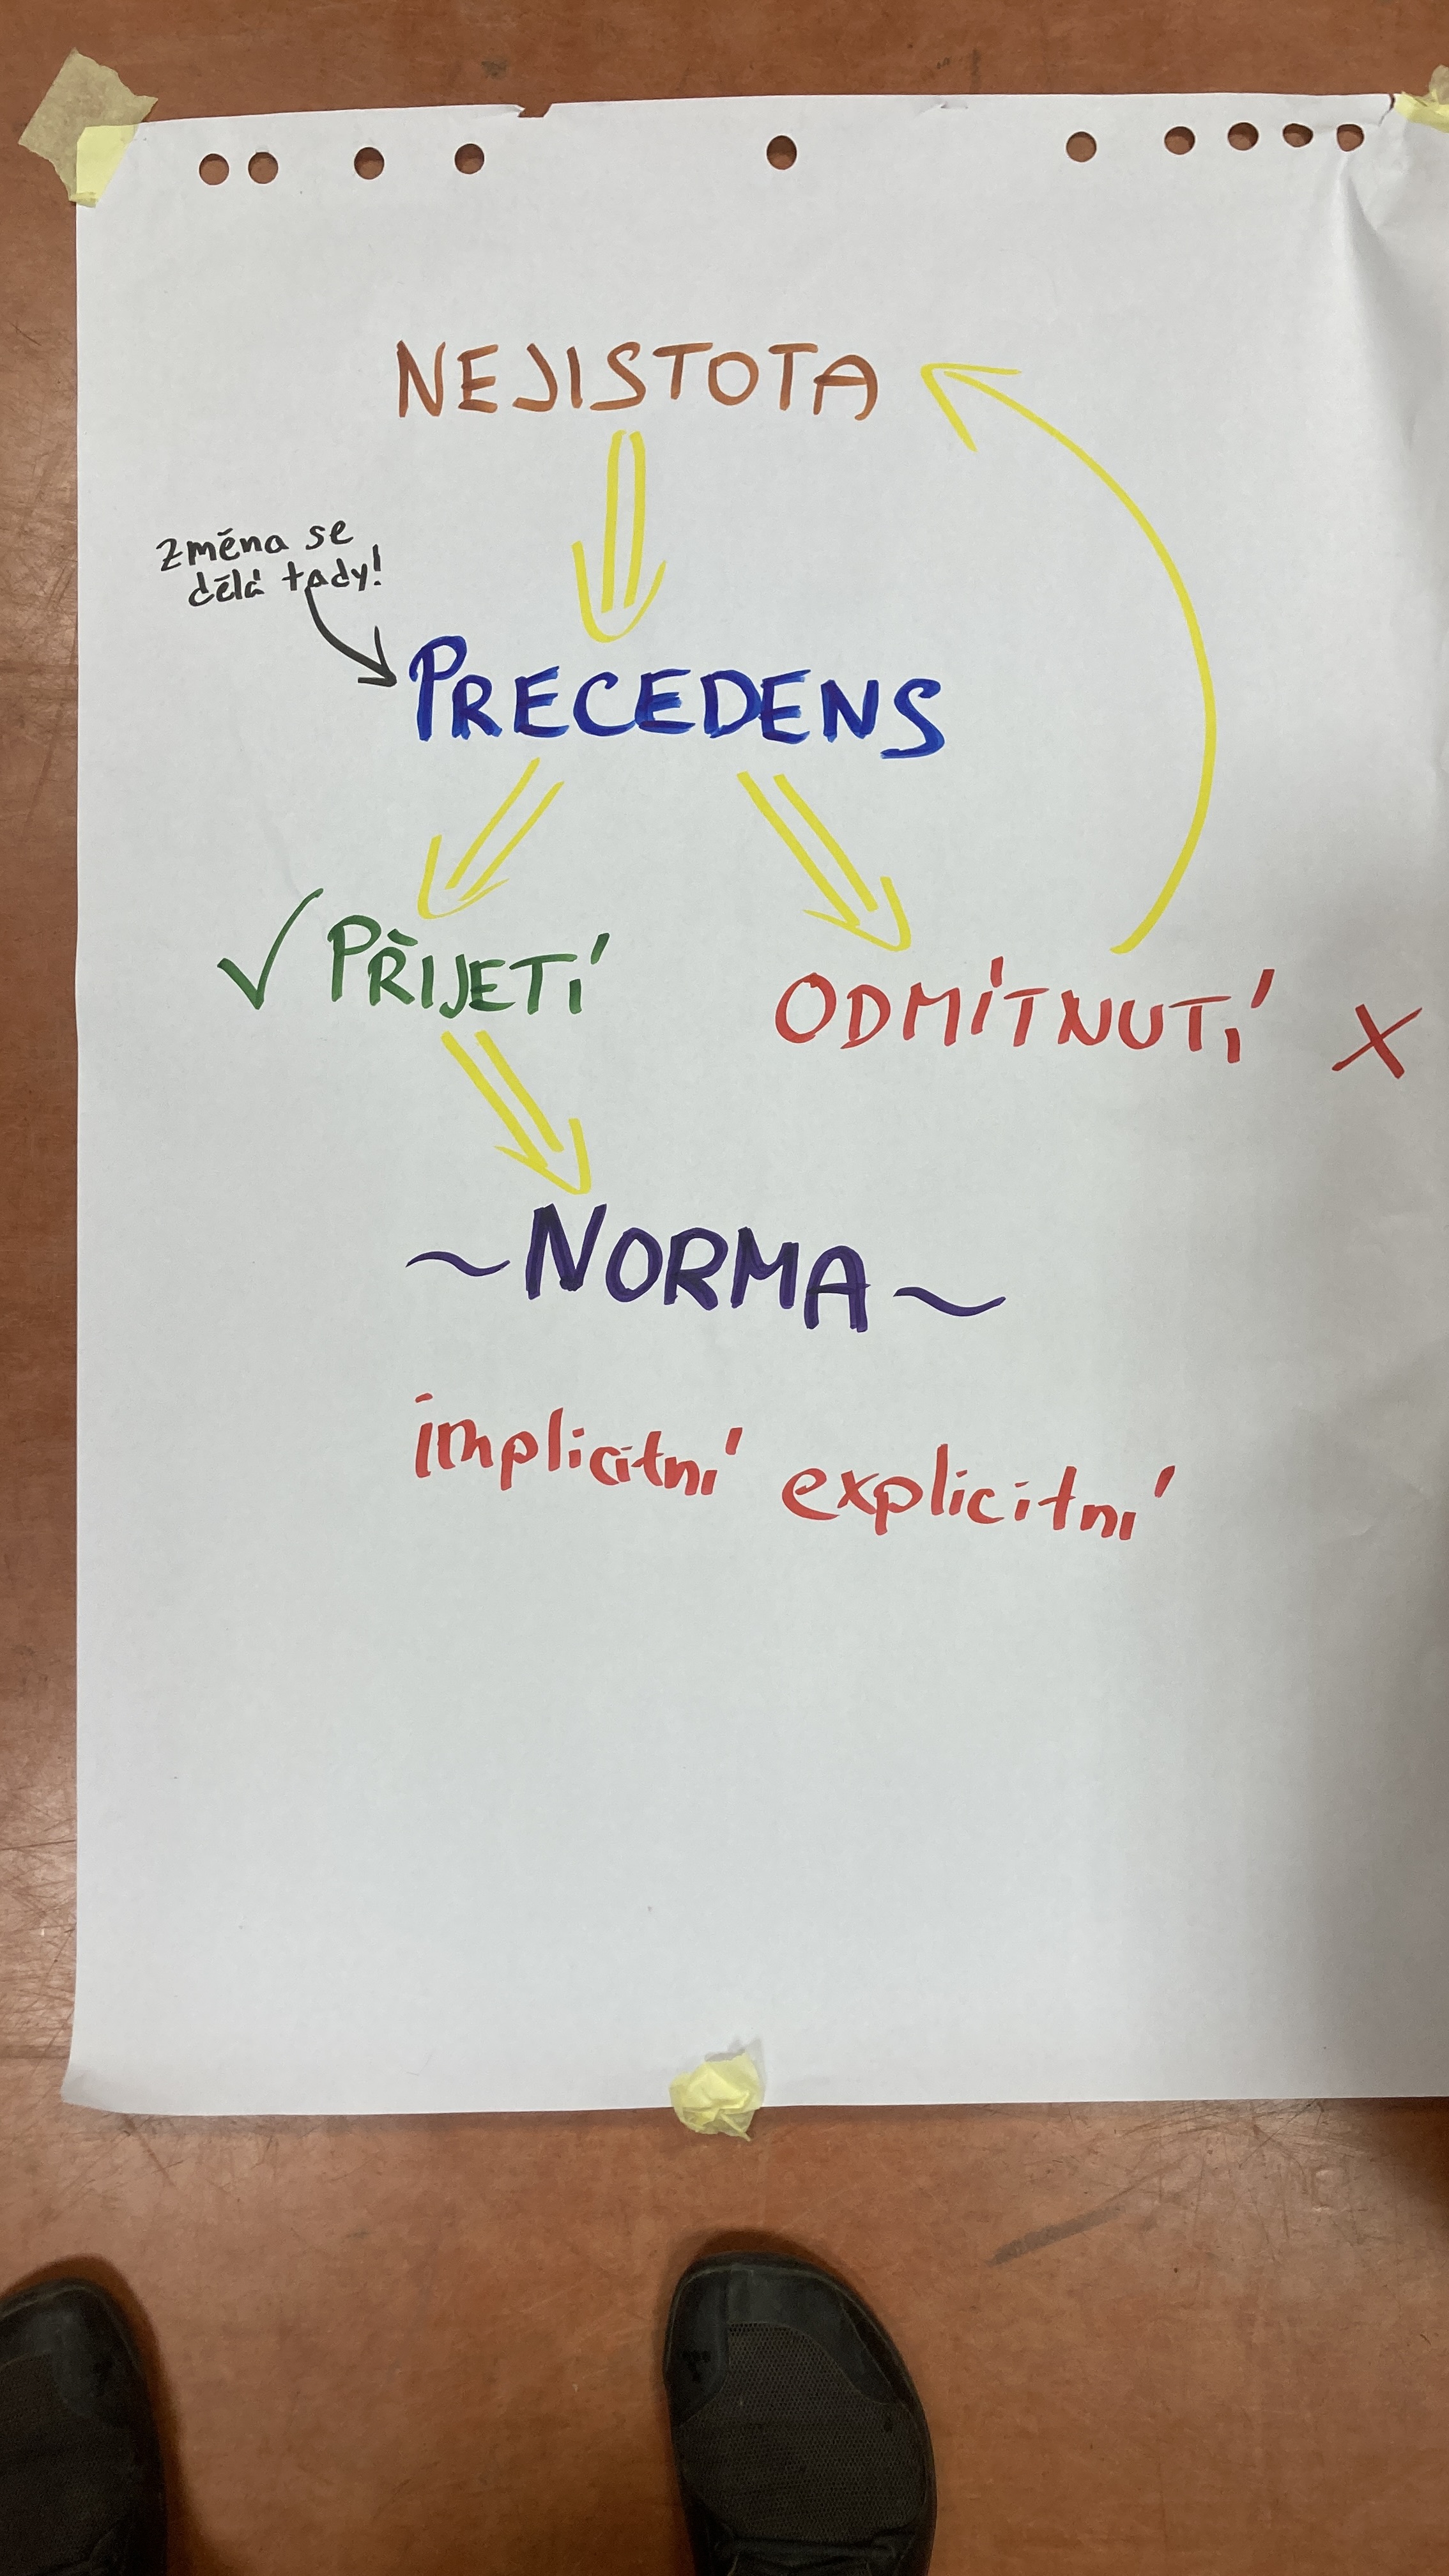 NEJISTOTA
Změna se
dělá tady!
PRECEDENS
✓ PŘIJETÍ
ODMÍTNUTÍ X
~NORMA~
implicitní explicitní